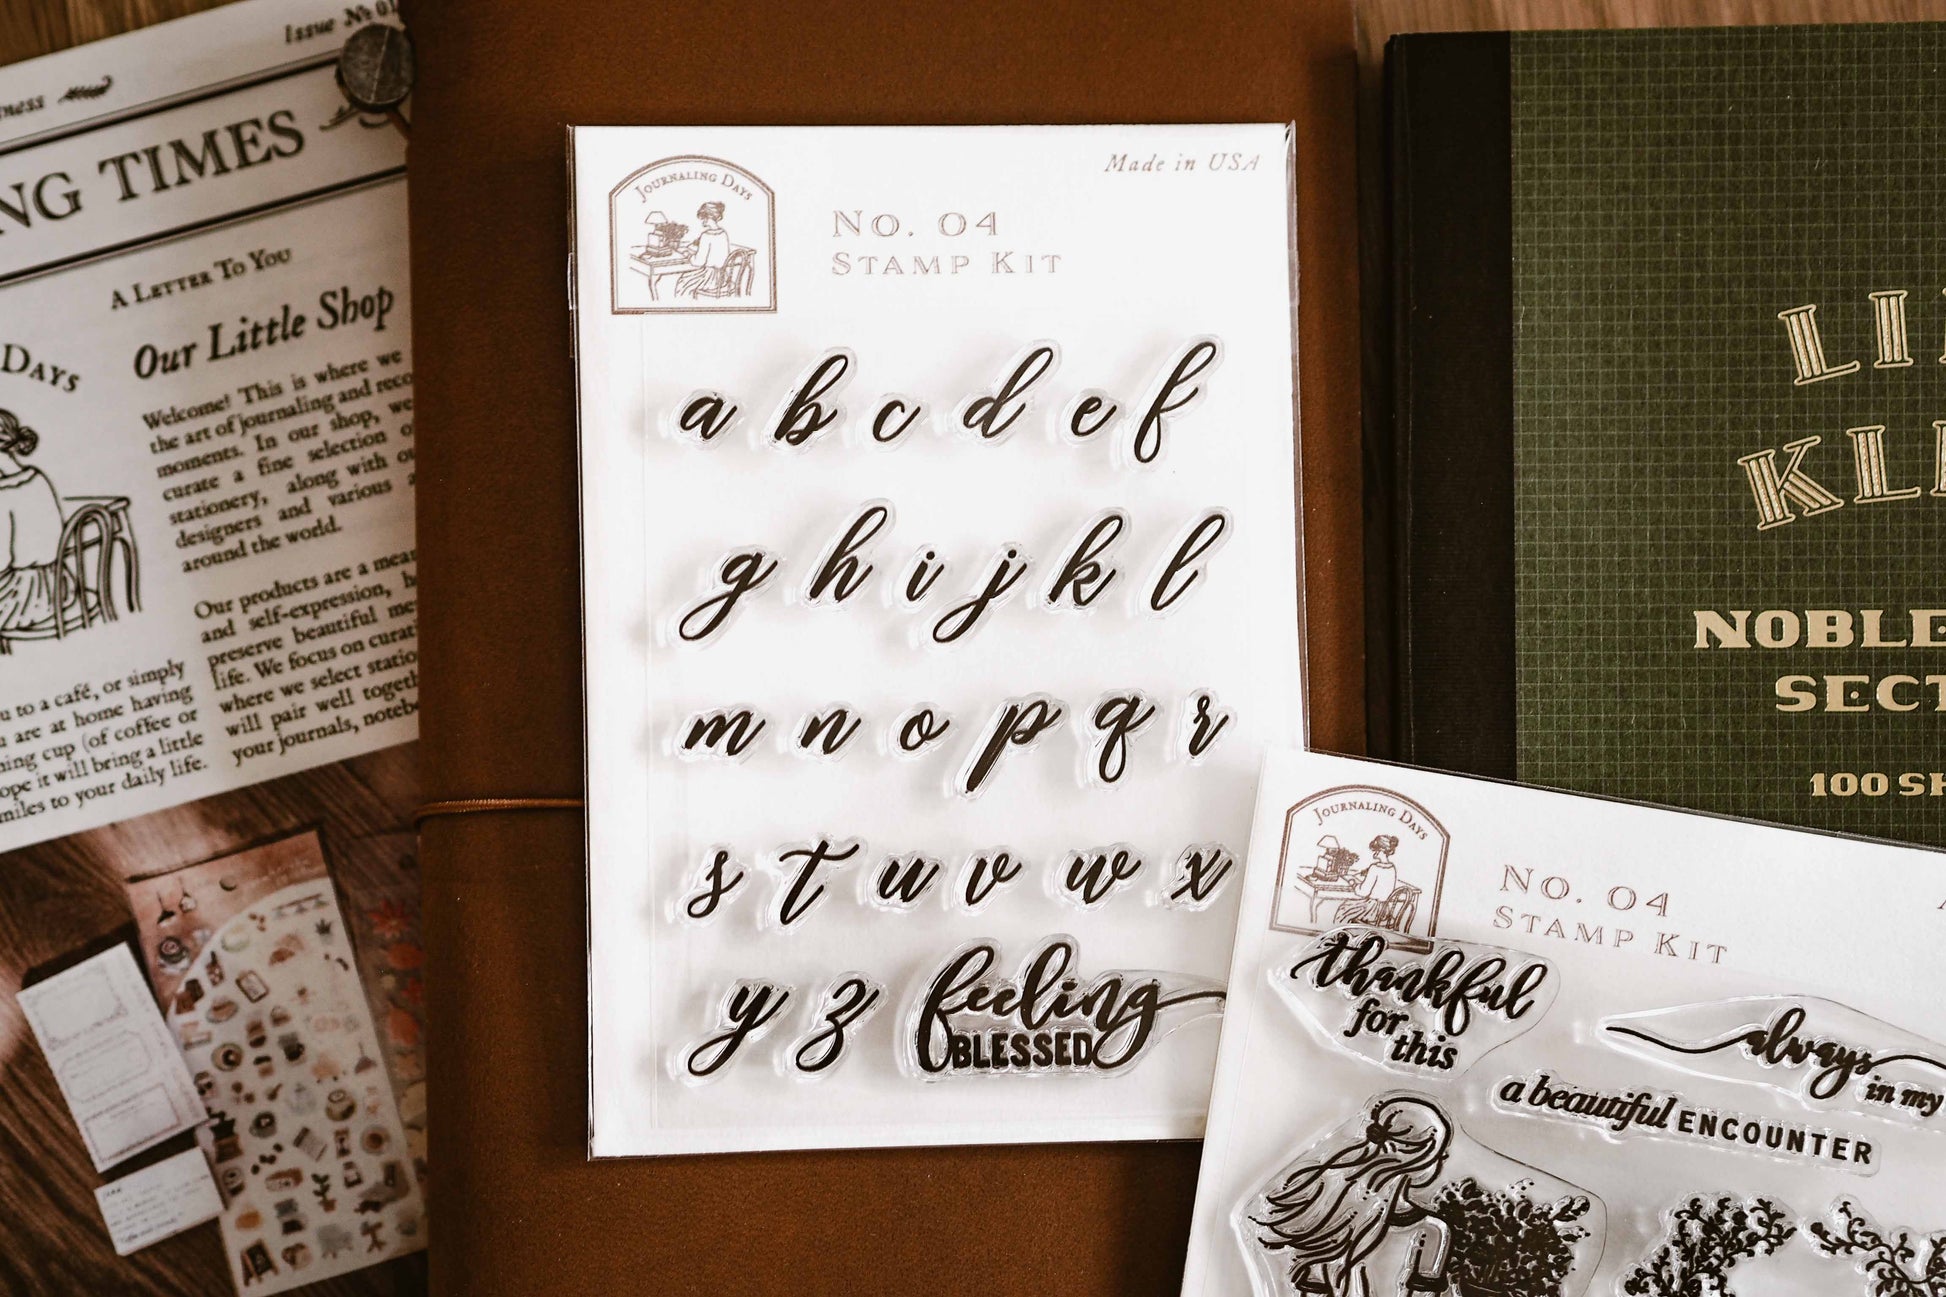 Issue № 01
NG TIMES
A Letter To You
Our Little Shop
Days
Welcome! This is where we
the art of journaling and
moments. In our shop, we
curate a fine selection
stationery, along with
designers and various
around the world.
Our products are a
and self-expression,
preserve beautiful
life. We focus on
where we select
will pair well
your journals,
to a café, or simply
are at home having
cup (of coffee or
it will bring a little
to your daily life.
Journaling Days
No. 04
Stamp Kit
Made in USA
a b c d e f
g h i j k l
m n o p q r
s t u v w x
y z feeling
BLESSED
LI
KL
NOBLE
SECT
100 SH
Journaling Days
No. 04
Stamp Kit
thankful
for this
always
in my
a beautiful ENCOUNTER